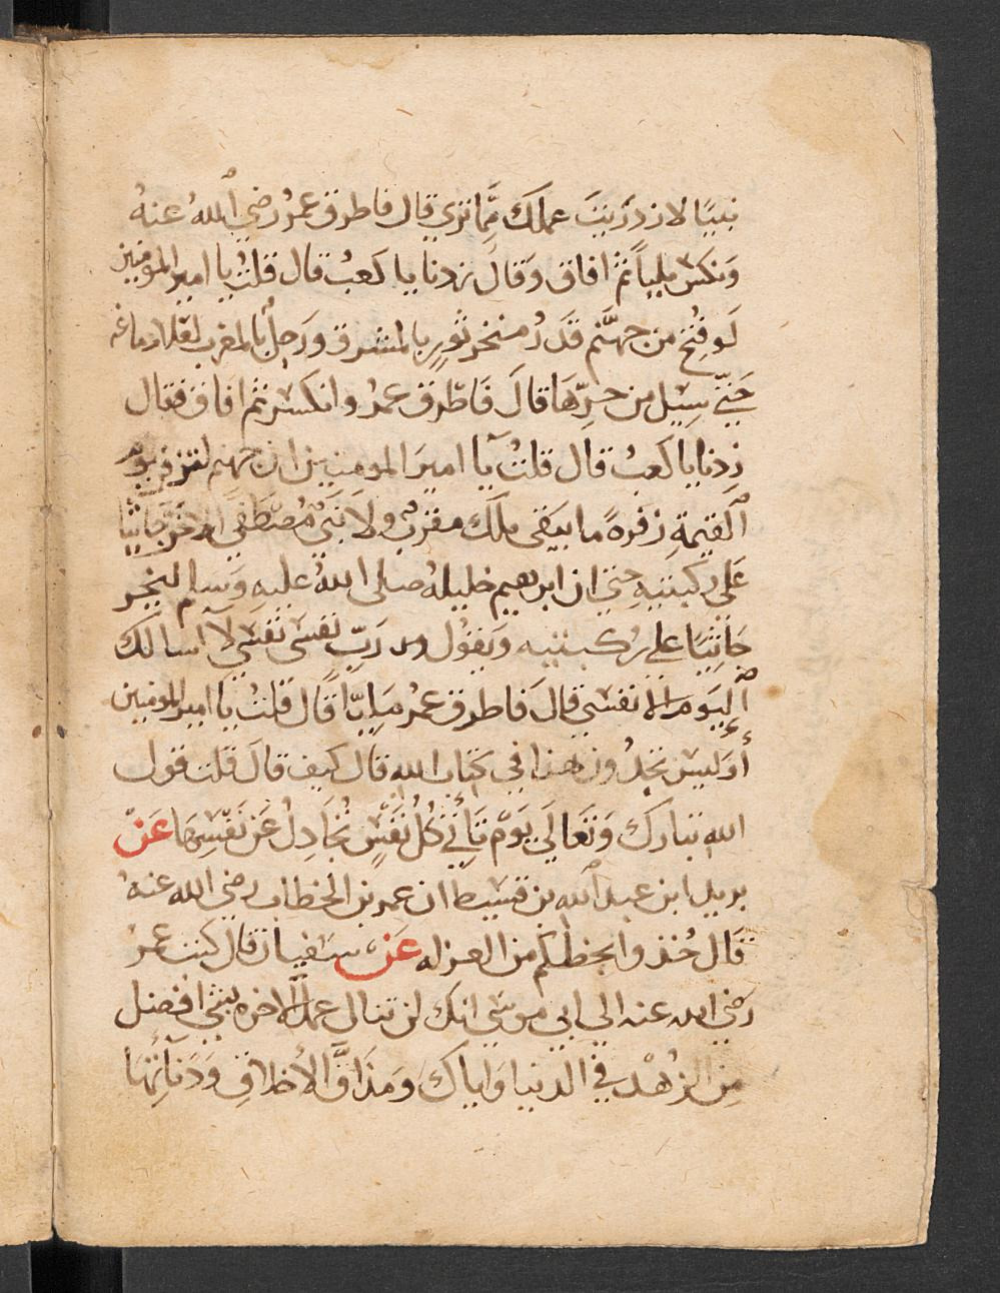 نبيًا لازدريت عملك ممّا تري قال فاطرق عمرُ رضي اللهُ عنهُ
ونكس مليًا ثم افاق وقال زدنا يا كعبُ قال قلتُ يا امير المومنين
لو فتح من جهنّم قدرُ منخر ثورٍ بالمشرق ورجلٌ بالمغرب لغلا دماغه
حتّي يسيل من حرِّها قال فاطّرق عمرُ وانكس ثم افاق فقال
زدنا يا كعبُ قال قلتُ يا امير المومنين ان جهنم لتزفر يوم
القيمةِ زفرةً ما يبقى ملك مقرب ولا نبيٌ مصطفي الا خر جاثيًا
علي ركبتيه حتي ان ابرهيم خليلهُ صلى اللهُ عليه وسلم ليخر
جاثيًا علي ركبتيه ويقول رب نفسي نفسي لا اسالك
اليوم الا نفسي قال فاطرق عمرُ مليًّا قال قلتُ يا امير المومنين
أوليس تجدُون هذا في كتاب الله قال كيف قال قلت قول
الله تبارك وتعالي يوم تاتي كُلُّ نفسٍ تُجادِلُ عن نفسِها عن
يزيد ابن عبد الله بن قسيط ان عمر بن الخطاب رضي الله عنهُ
قال خُذوا بحظكم من العزله عن سفيان قال كتب عمر
رضي الله عنه الي ابي موسي انك لن تنال عمل الاخره بشي افضل
مِن الزُهْد في الدنيا واياك ومذاقّ الأخلاقِ ودناتها